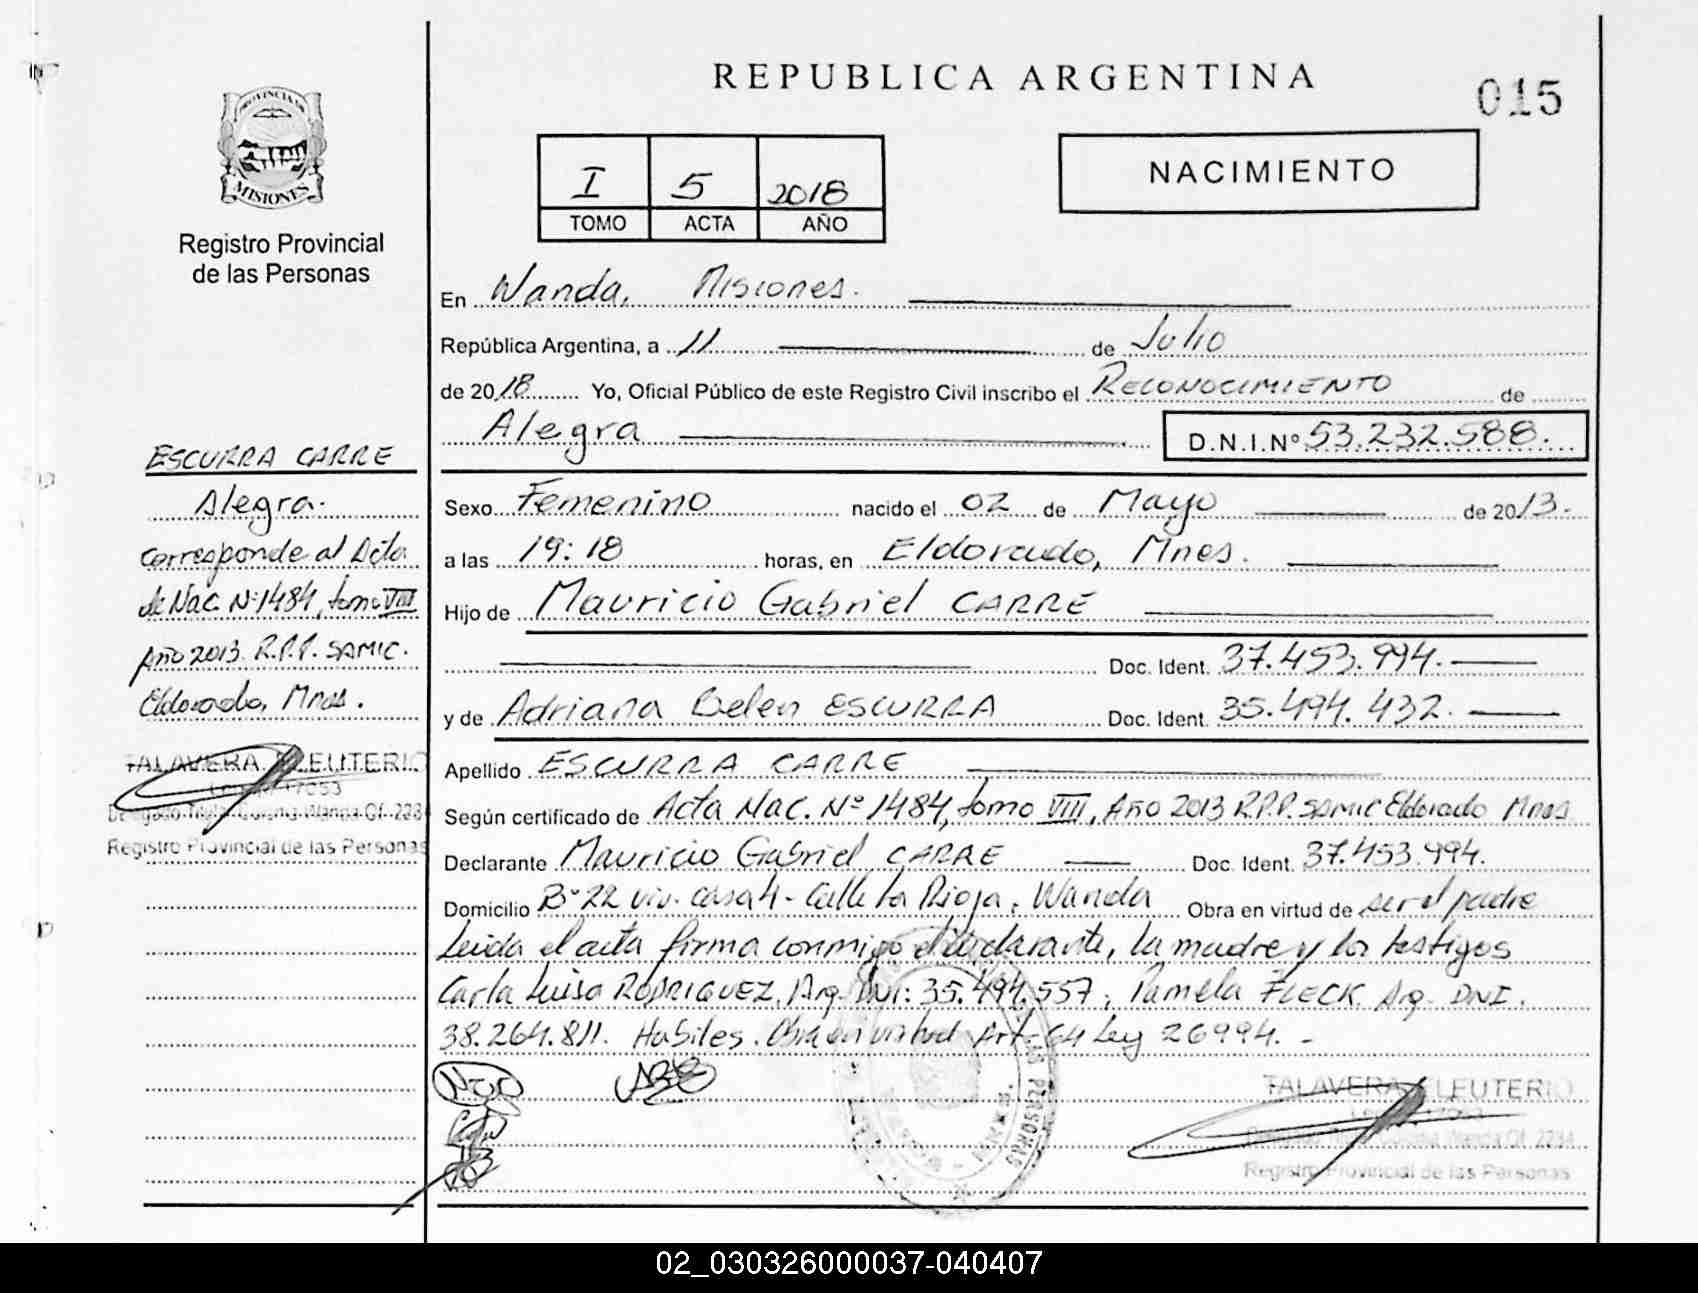 REPUBLICA ARGENTINA
015
PROVINCIA DE
MISIONES
Registro Provincial
de las Personas
I 5 2018
TOMO ACTA AÑO
NACIMIENTO
En Wanda, Misiones.
República Argentina, a 11 de Julio
de 2018 Yo, Oficial Público de este Registro Civil inscribo el RECONOCIMIENTO de
Alegra D.N.I.Nº 53.232.588.
ESCURRA CARRE
Alegra.
corresponde al Acta
de Nac. Nº 1484, tomo VIII
Año 2013 R.P.P. SAMIC.
Eldorado, Mnes.
TALAVERA ELEUTERIO
Registro Provincial de las Personas
Sexo Femenino nacido el 02 de Mayo de 2013.
a las 19:18 horas, en Eldorado, Mnes.
Hijo de Mauricio Gabriel CARRE
Doc. Ident. 37.453.994.
y de Adriana Belen ESCURRA Doc. Ident. 35.494.432.
Apellido ESCURRA CARRE
Según certificado de Acta Nac. Nº 1484, tomo VIII, Año 2013 R.P.P. SAMIC Eldorado Mnes
Declarante Mauricio Gabriel CARRE Doc. Ident. 37.453.994.
Domicilio Bº 22 viv. casa 4 - Calle La Rioja, Wanda Obra en virtud de ser el padre
Leida el acta firma conmigo el declarante, la madre y los testigos
Carla Luisa RODRIGUEZ, Arg. DNI: 35.494.557, Pamela FLECK Arg. DNI.
38.264.811. Habiles. Obra en virtud Art. 64 Ley 26994. -
TALAVERA ELEUTERIO
Registro Provincial de las Personas
02_030326000037-040407